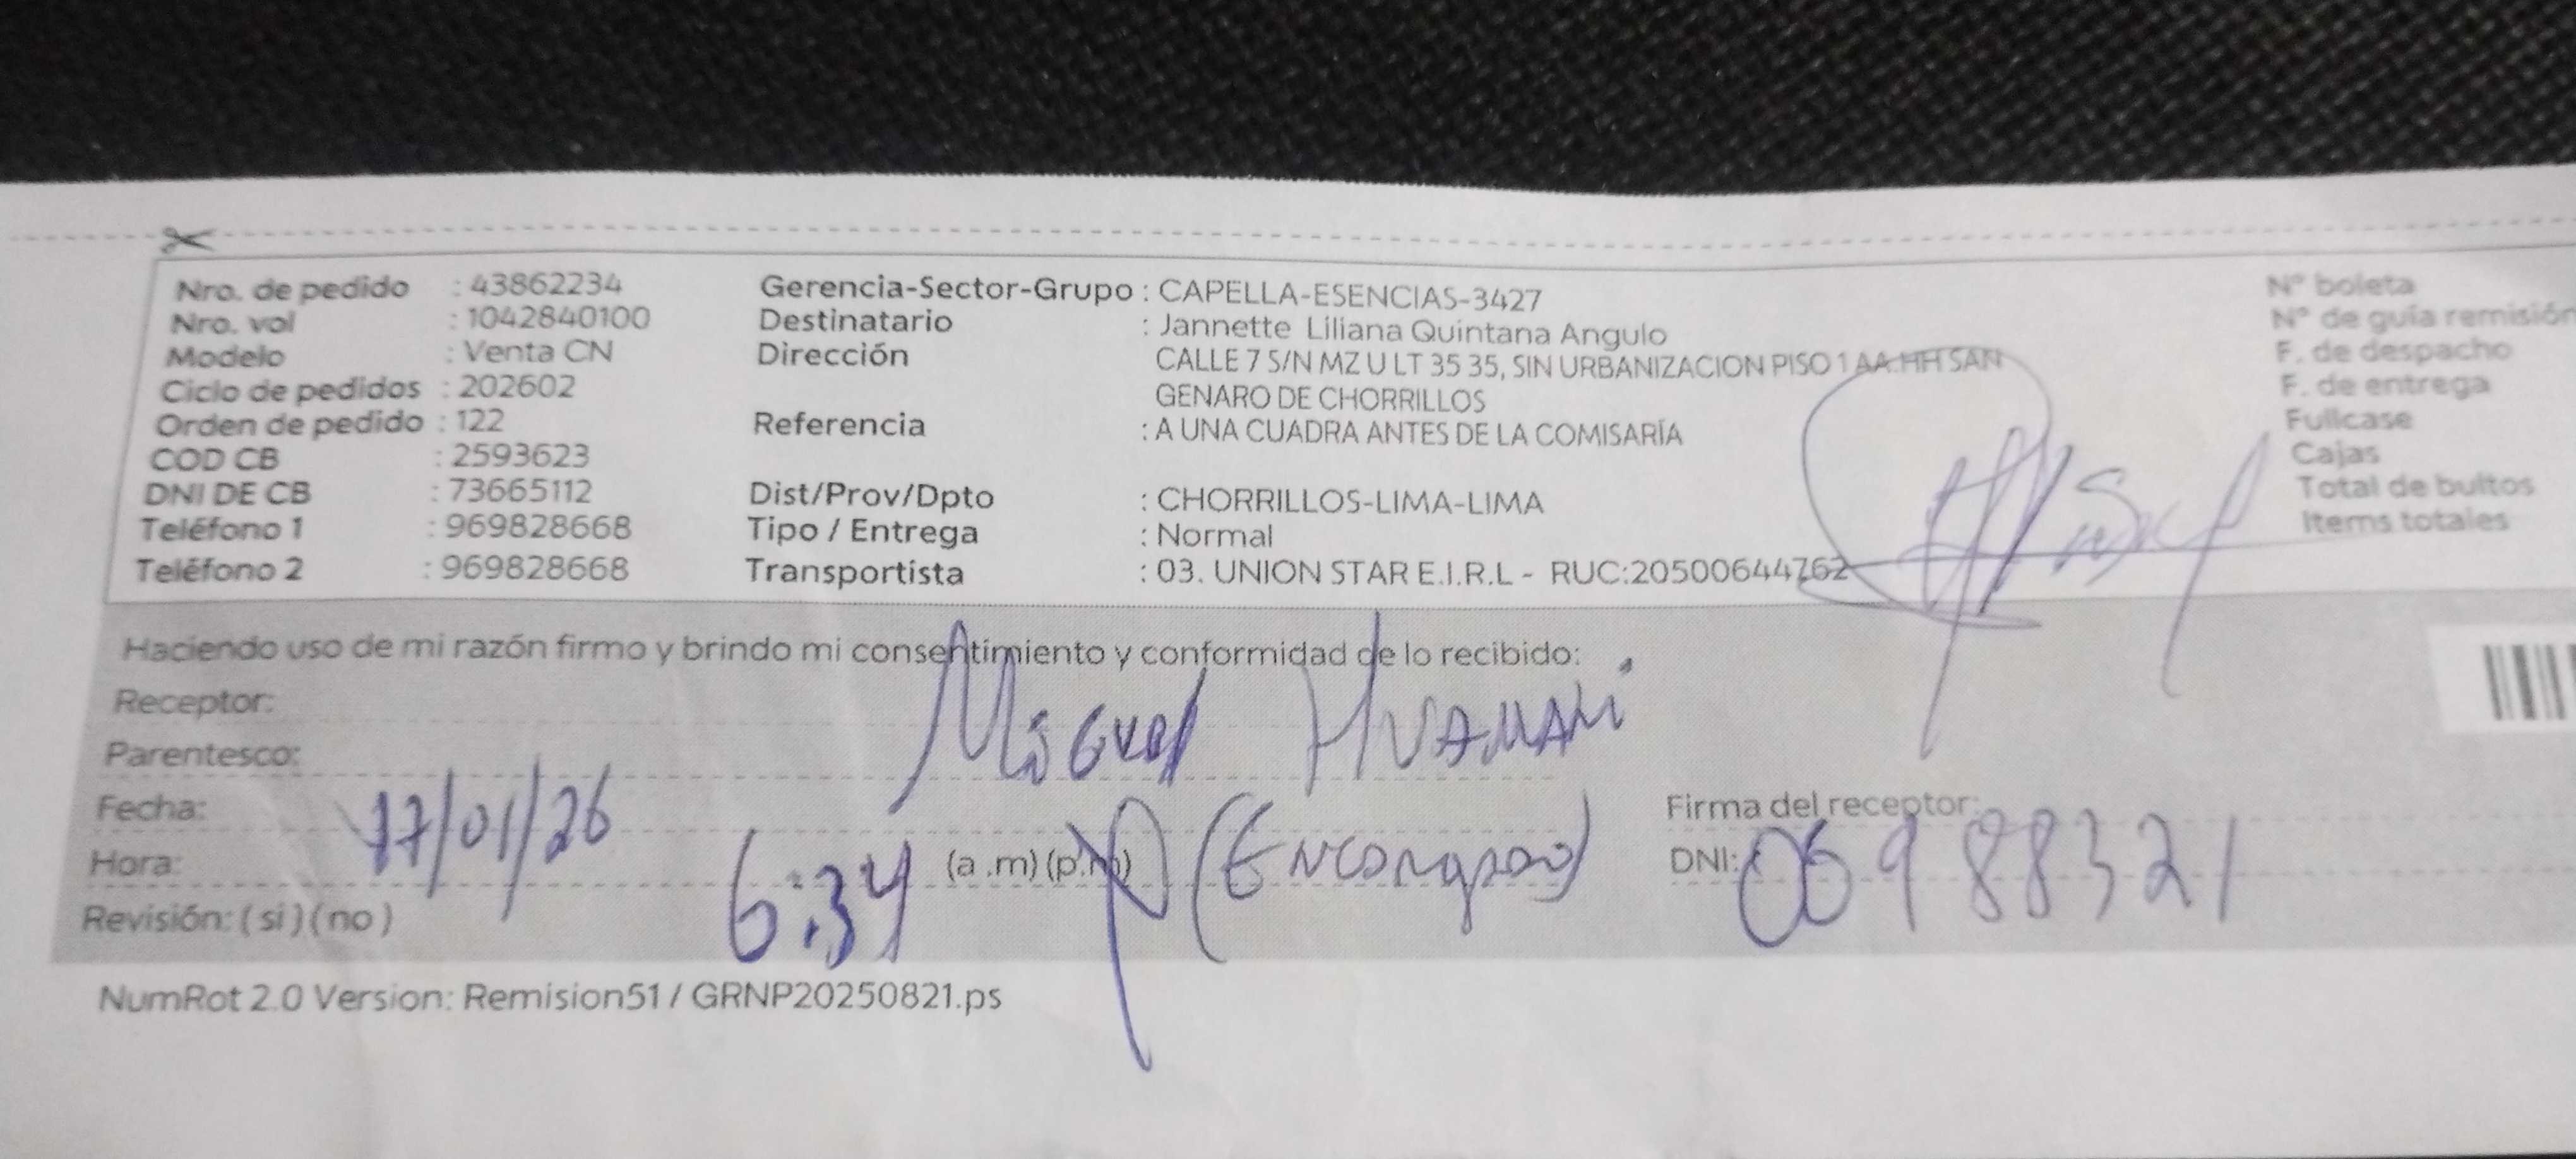 Nro. de pedido : 43862234
Nro. vol : 1042840100
Modelo : Venta CN
Ciclo de pedidos : 202602
Orden de pedido : 122
COD CB : 2593623
DNI DE CB : 73665112
Teléfono 1 : 969828668
Teléfono 2 : 969828668
Gerencia-Sector-Grupo : CAPELLA-ESENCIAS-3427
Destinatario : Jannette Liliana Quintana Angulo
Dirección CALLE 7 S/N MZ U LT 35 35, SIN URBANIZACION PISO 1 AA.HH SAN
GENARO DE CHORRILLOS
Referencia : A UNA CUADRA ANTES DE LA COMISARÍA
Dist/Prov/Dpto : CHORRILLOS-LIMA-LIMA
Tipo / Entrega : Normal
Transportista : 03. UNION STAR E.I.R.L - RUC:20500644762
N° boleta
N° de guía remisión
F. de despacho
F. de entrega
Fullcase
Cajas
Total de bultos
Items totales
Haciendo uso de mi razón firmo y brindo mi consentimiento y conformidad de lo recibido:
Receptor: Miguel HUAMANI
Parentesco:
Fecha: 17/01/26
Hora: 6:34 (a .m) (p.m) (Encargado)
Revisión: ( si ) ( no )
Firma del receptor:
DNI: 06988321
NumRot 2.0 Version: Remision51 / GRNP20250821.ps